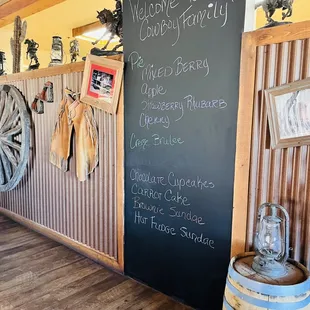 Welcome to
Cowboy Family
Pie
Mixed Berry
Apple
Strawberry Rhubarb
Cherry
Creme Brulee
Chocolate Cupcakes
Carrot Cake
Brownie Sundae
Hot Fudge Sundae